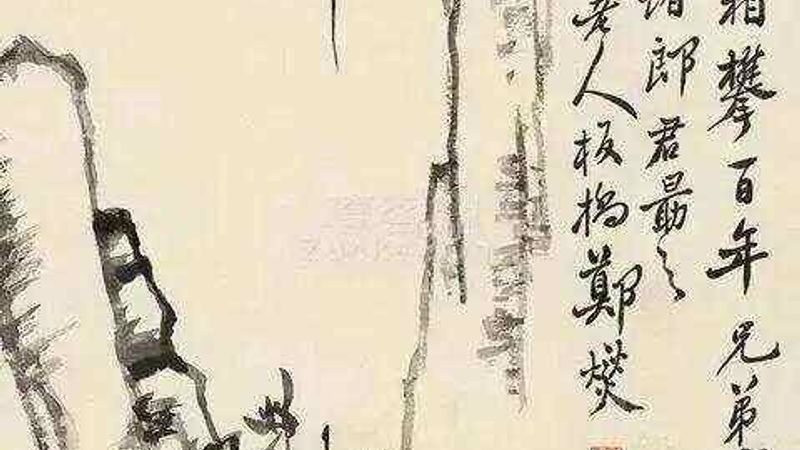 相攀百年兄弟
郎君勗之
老人板橋鄭燮